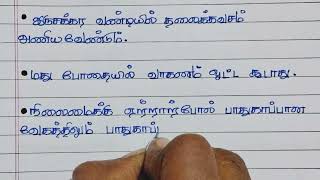 • இருசக்கர வண்டியில் தலைக்கவசம்
அணிய வேண்டும்.
• மது போதையில் வாகனம் ஓட்ட கூடாது.
• நிலைமைக்கு ஏற்றார்போல் பாதுகாப்பான
வேகத்திலும் பாதுகாப்